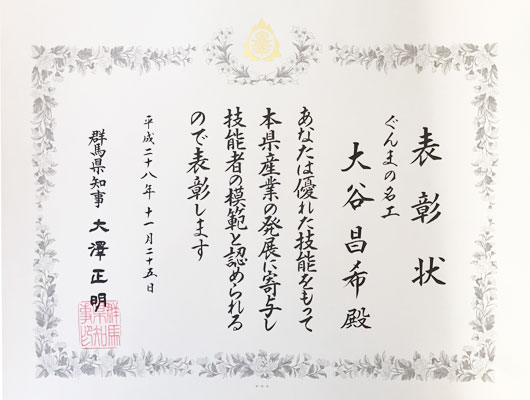 表彰状
ぐんまの名工
大谷昌希殿
あなたは優れた技能をもって
本県産業の発展に寄与し
技能者の模範と認められる
ので表彰します
平成二十八年十一月二十五日
群馬県知事 大澤正明
群馬県知事印